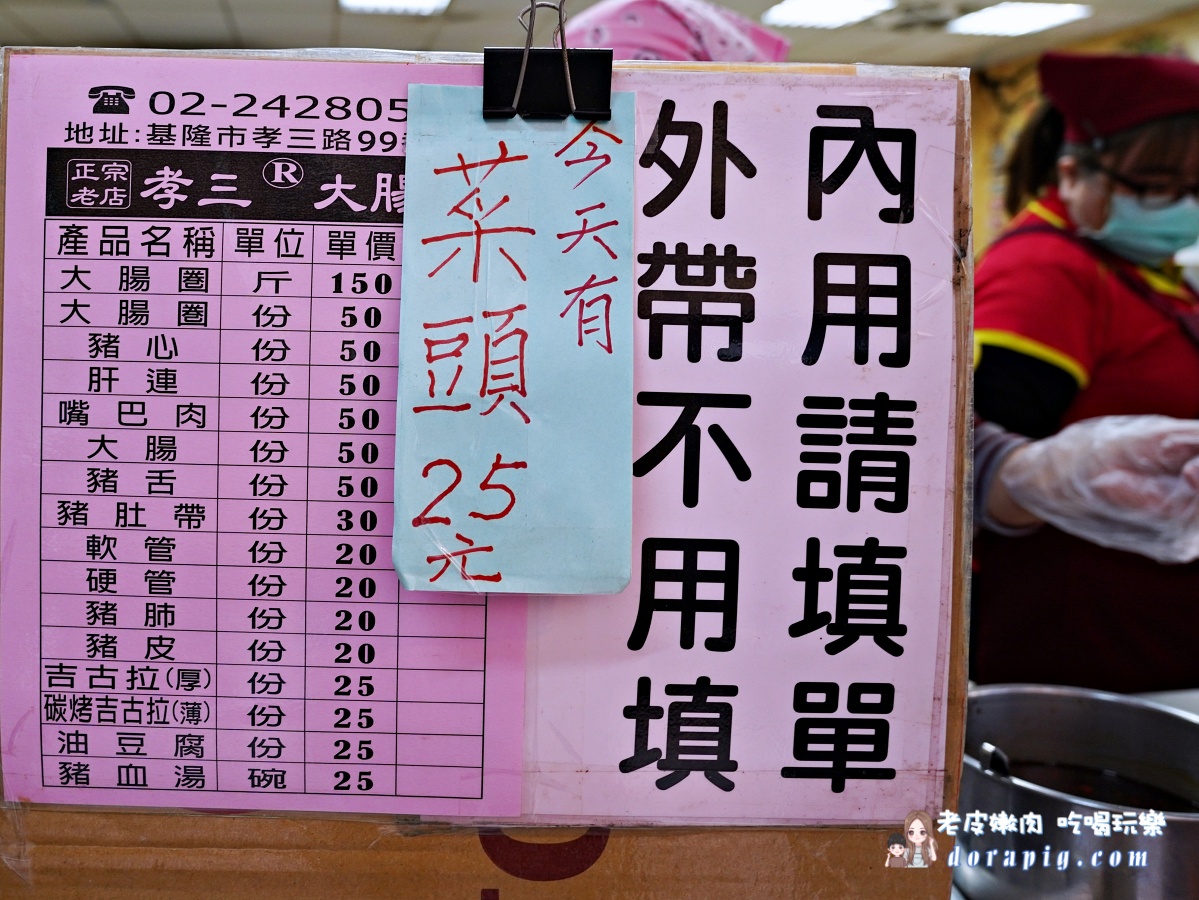 ☎ 02-242805
地址:基隆市孝三路99
正宗
老店
孝三® 大腸
產品名稱 單位 單價
大腸圈 斤 150
大腸圈 份 50
豬心 份 50
肝連 份 50
嘴巴肉 份 50
大腸 份 50
豬舌 份 50
豬肚帶 份 30
軟管 份 20
硬管 份 20
豬肺 份 20
豬皮 份 20
吉古拉(厚) 份 25
碳烤吉古拉(薄) 份 25
油豆腐 份 25
豬血湯 碗 25
今天有
菜頭25元
內用請填單
外帶不用填
老皮嫩肉 吃喝玩樂
dorapig.com